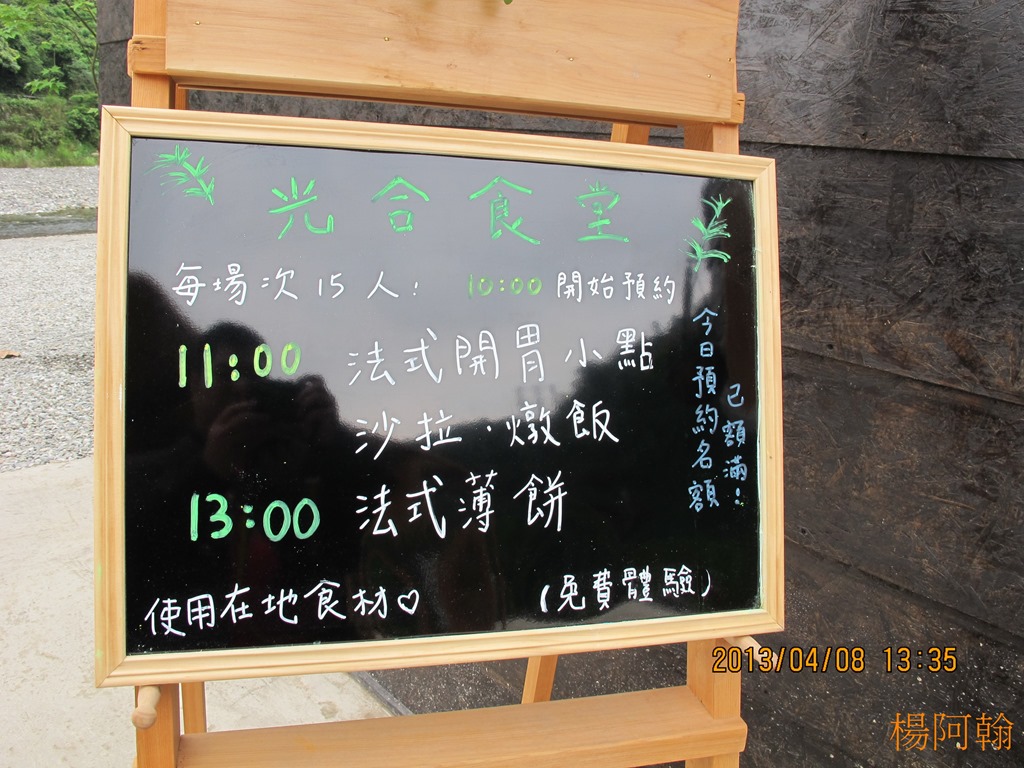 光合食堂
每場次15人! 10:00 開始預約
11:00 法式開胃小點
沙拉.燉飯
13:00 法式薄餅
使用在地食材♡ (免費體驗)
今日預約名額
已額滿!
2013/04/08 13:35
楊阿翰